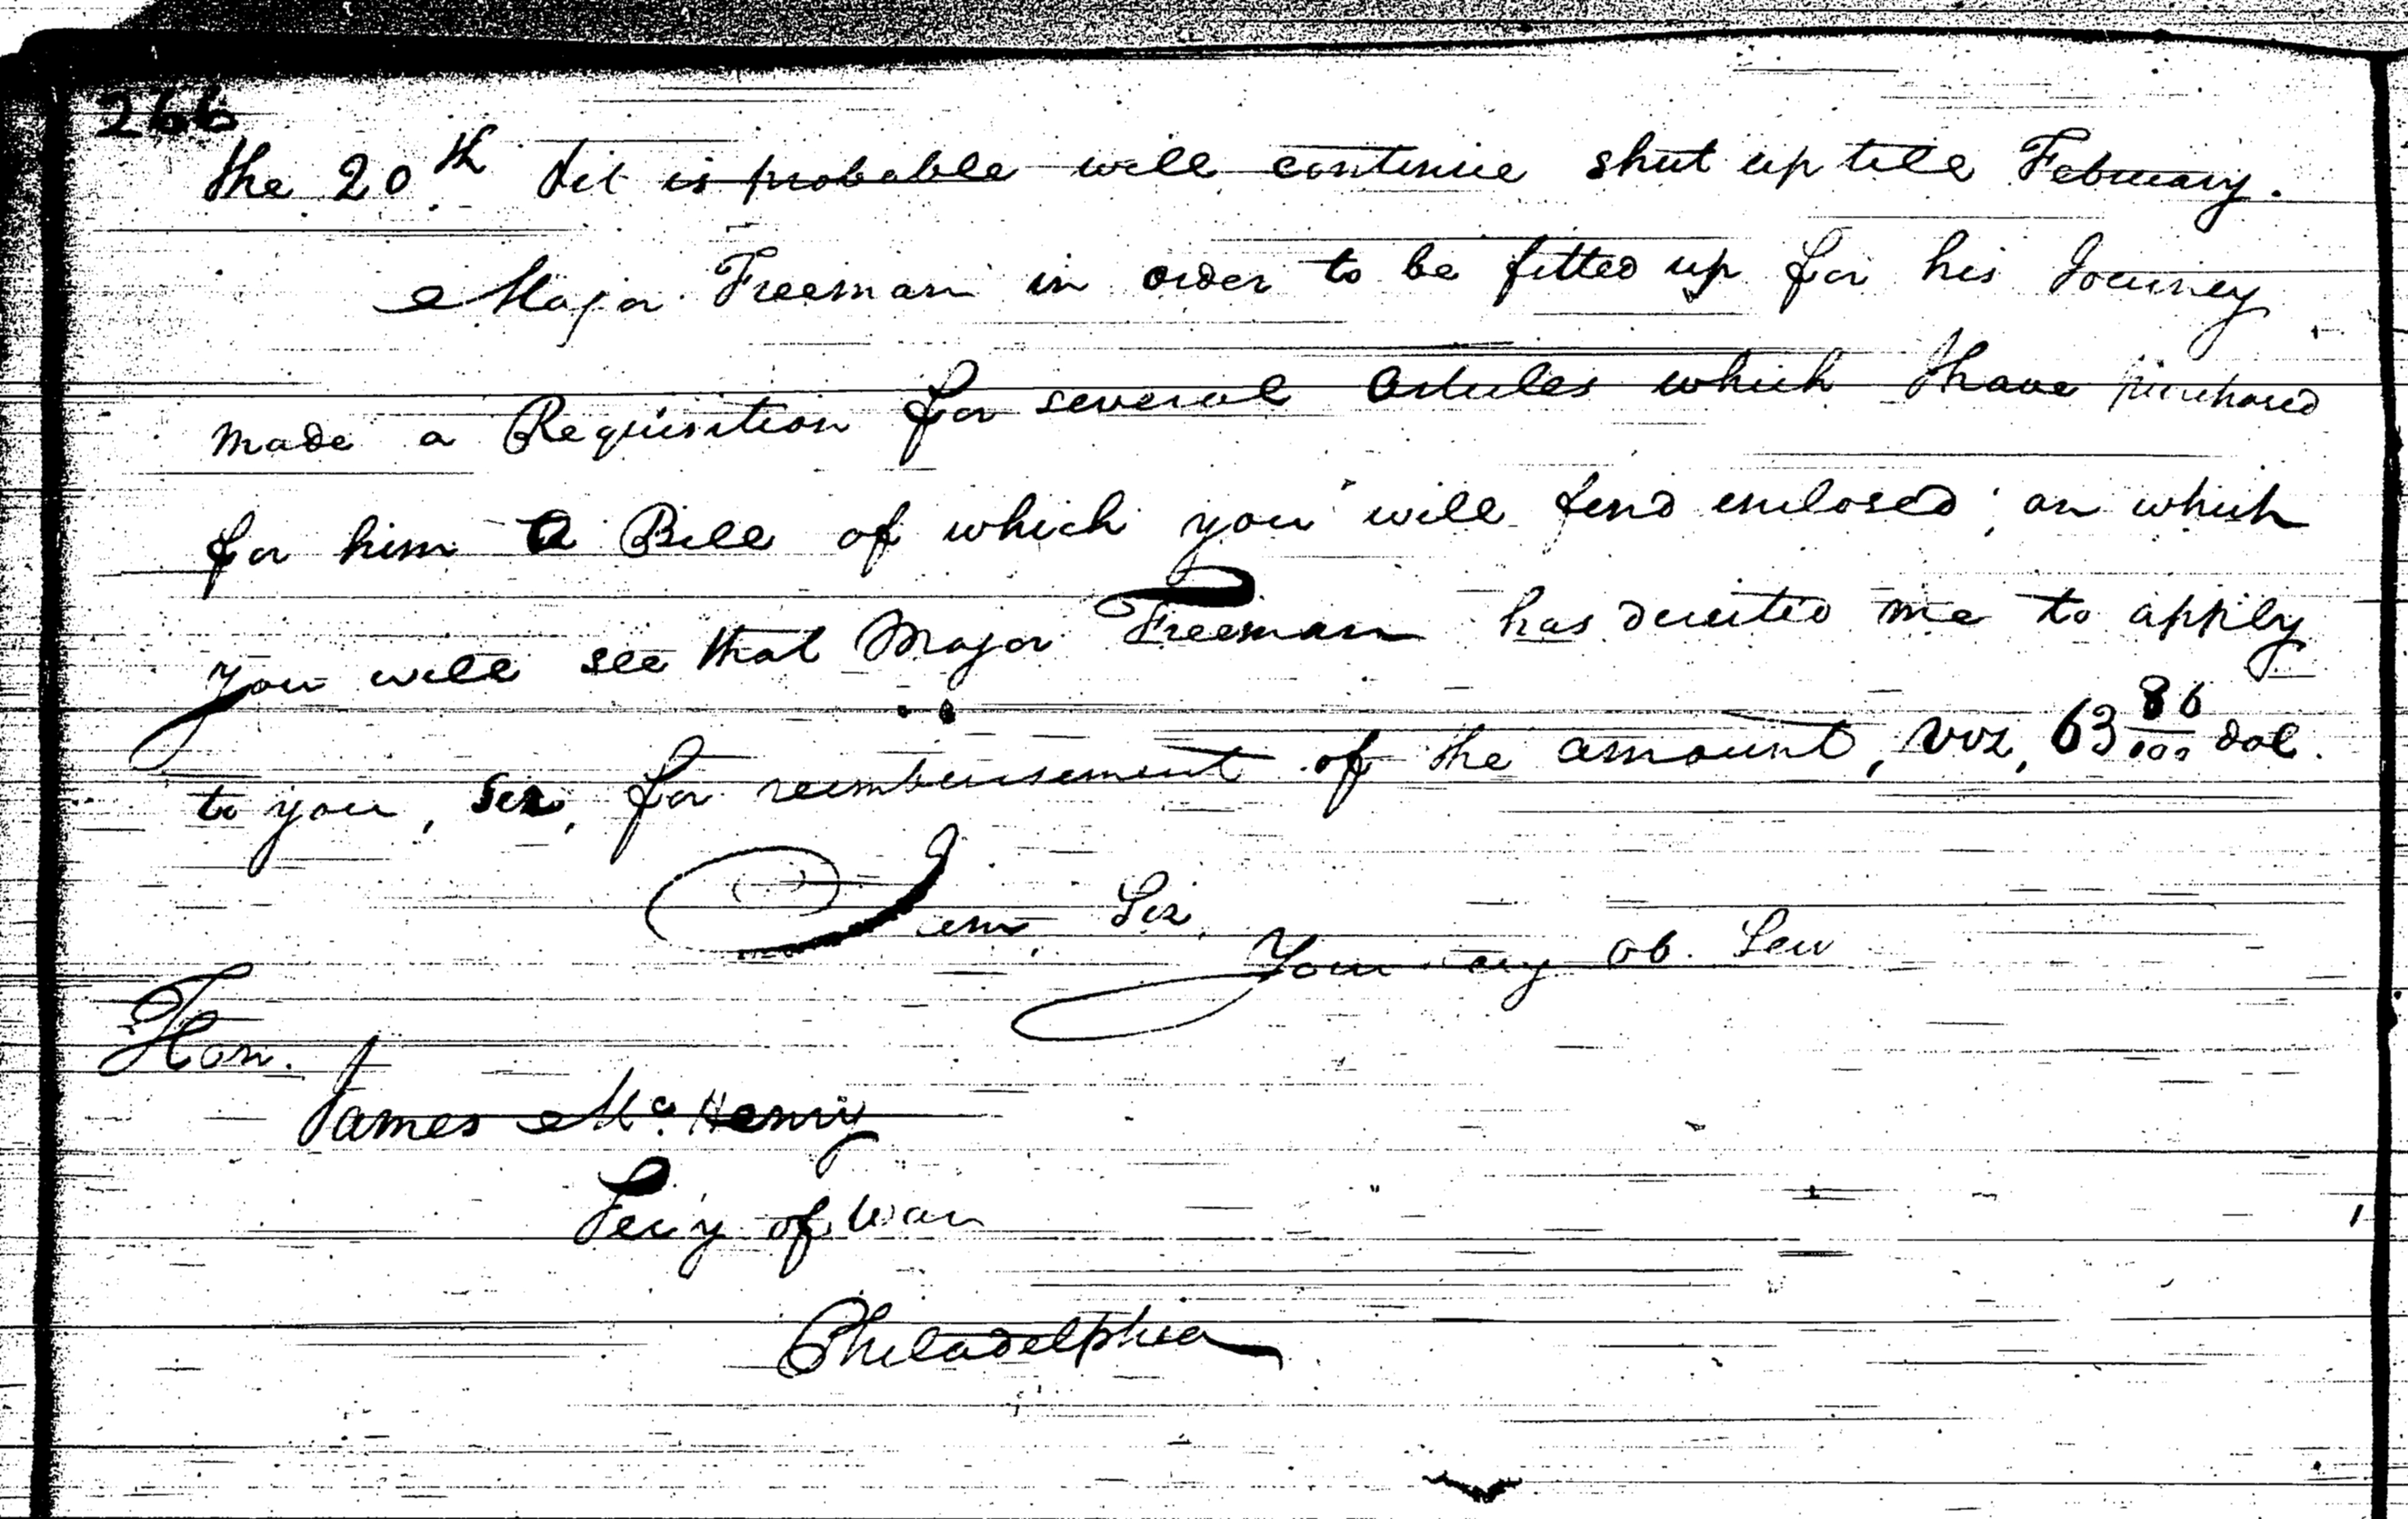 266
the 20th & it is probable will continue shut up till February.
Major Freeman in order to be fitted up for his Journey
made a Requisition for several Articles which I have purchased
for him a Bill of which you will find enclosed; on which
you will see that Major Freeman has directed me to apply
to you, Sir, for reimbursement of the amount, viz, 63 86/100 dol.
I am, Sir,
Your ob. Serv
Hon.
James Mc. Henry
Sec'y of War
Philadelphia